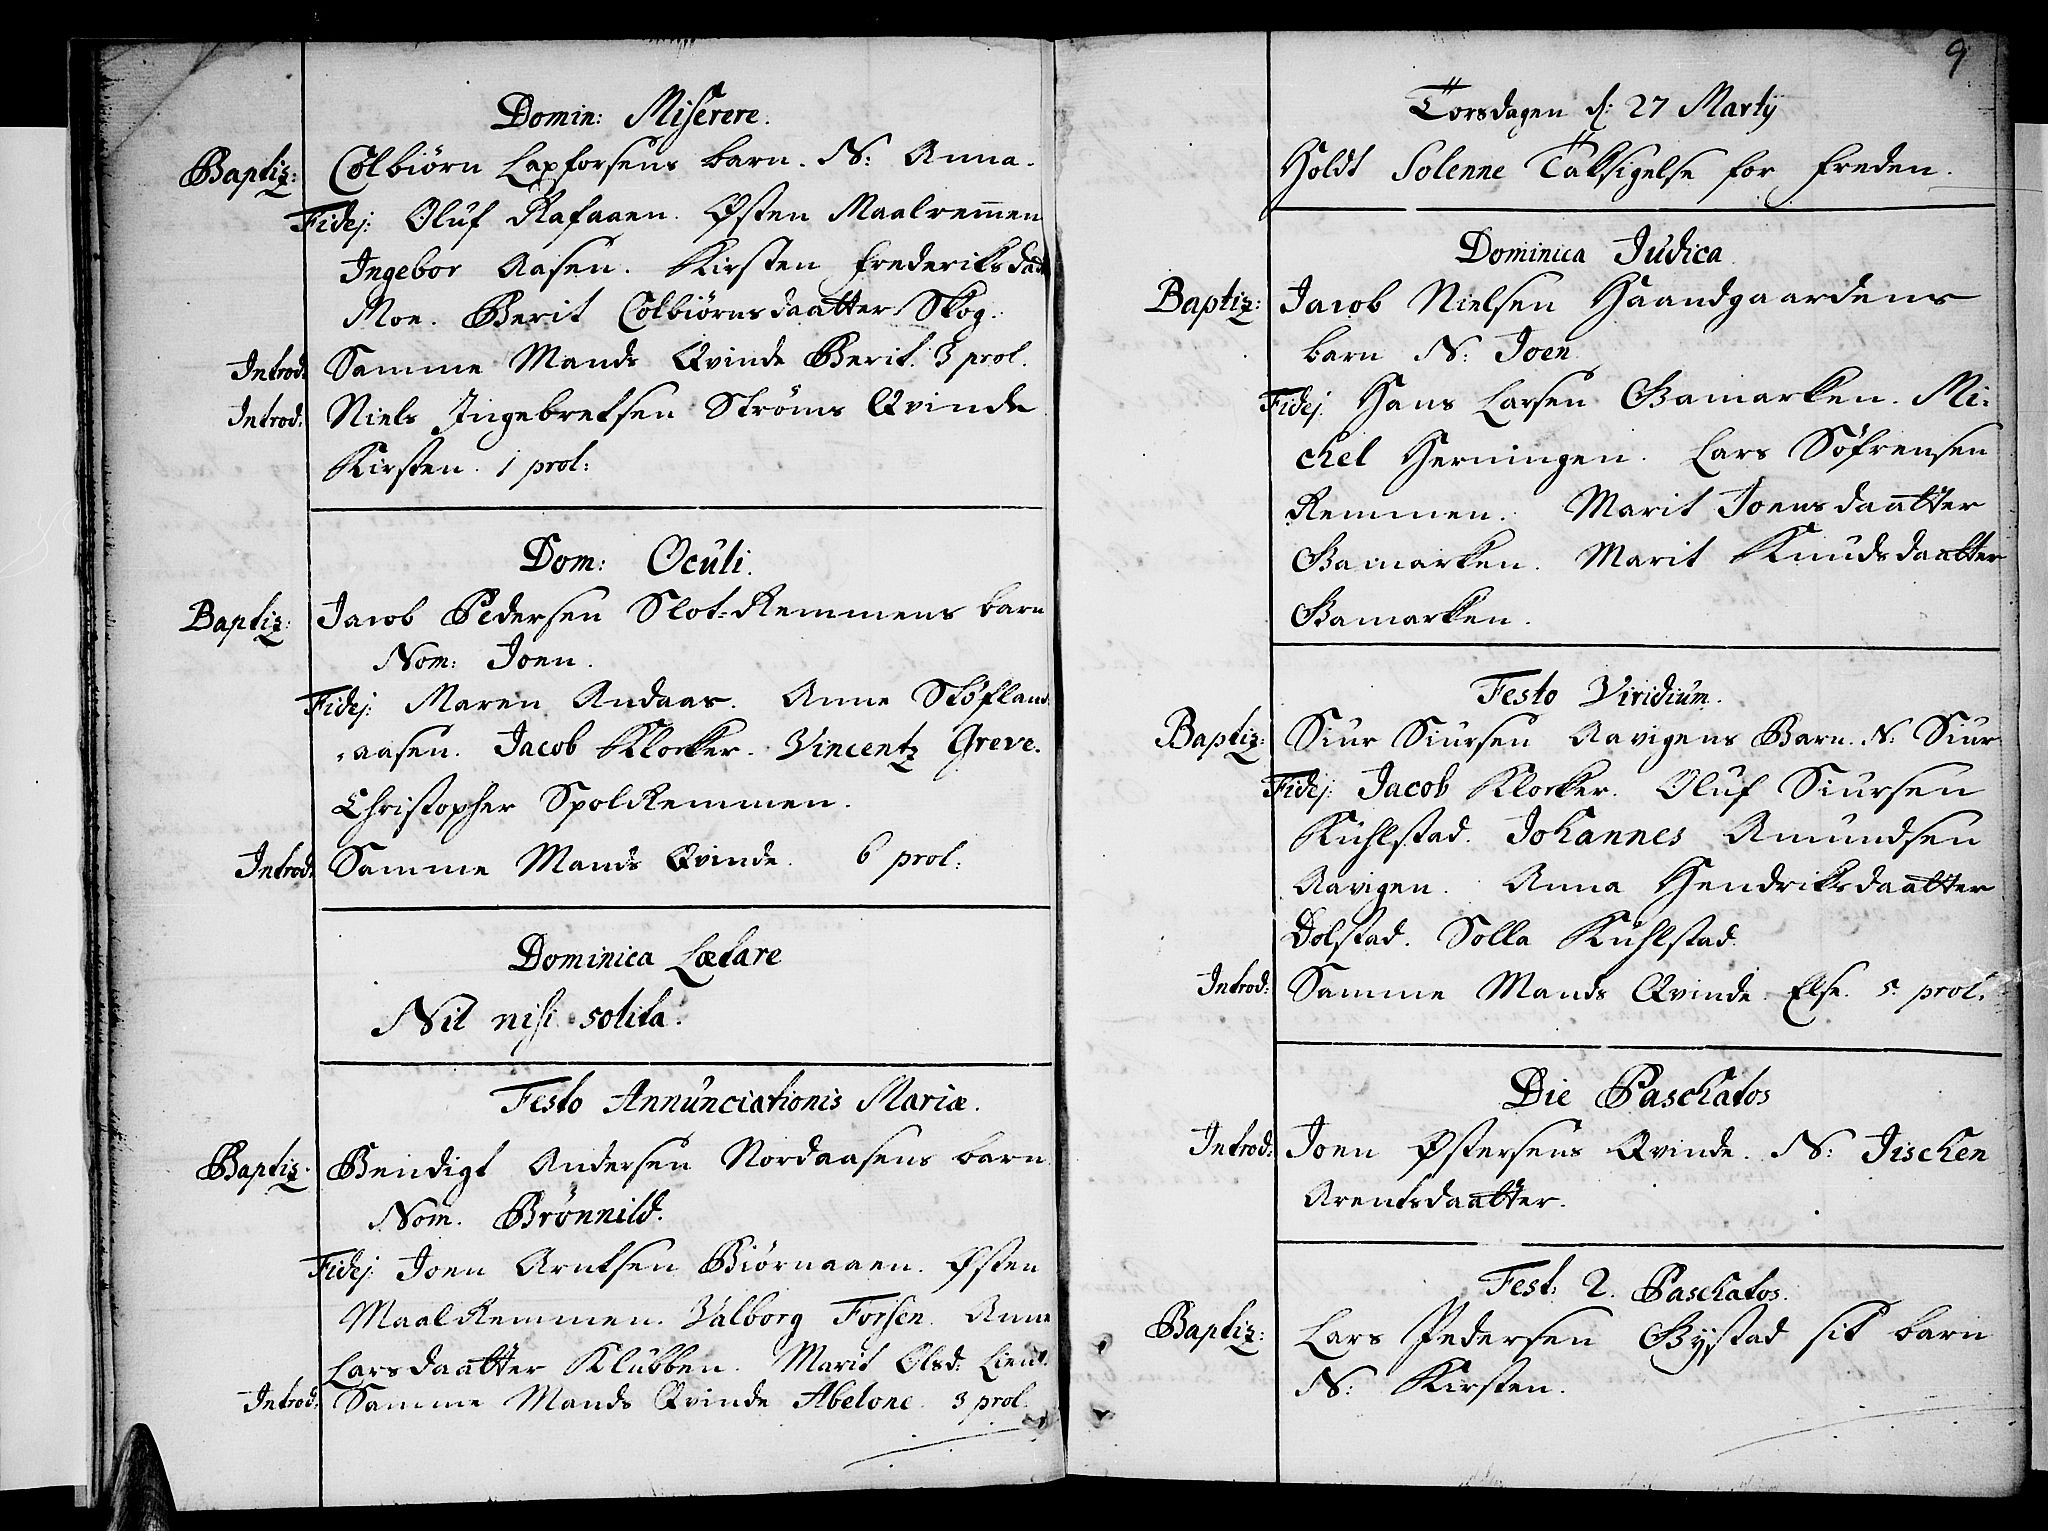 Domin: Miserere.
Baptiz: Colbiørn Laxforsens barn. N: Anna.
Fidej: Oluf Rafaaen. Østen Maalremmen
Ingebor Aasen. Kirsten Frederiksdaat
Moe. Berit Colbiørnsdaatter Skog.
Introd: Samme Mands Qvinde Berit. 3 prol.
Introd: Niels Ingebretsen Strøms Qvinde
Kirsten. 1 prol:
Dom: Oculi.
Baptiz: Jacob Pedersen Slot-Remmens barn
Nom: Joen.
Fidej: Maren Andaas. Anne Skøfland
aasen. Jacob Klocker. Vincentz Greve.
Christopher SpolRemmen.
Introd: Samme Mands Qvinde. 6 prol:
Dominica Lætare
Nil nisi solita.
Festo Annunciationis Mariæ.
Baptiz: Bendigt Andersen Nordaasens barn
Nom. Brønnild.
Fidej: Joen Arntsen Biørnaaen. Østen
MaalRemmen. Valborg Forsen. Anne
Larsdaatter Klubben. Marit Olsd: Lien.
Introd: Samme Mands Qvinde Abelone. 3 prol.
9
Torsdagen d: 27 Martij
Holdt Solenne Taksigelse for freden.
Dominica Judica
Baptiz: Jacob Nielsen Haandgaardens
barn N: Joen
Fidej: Hans Larsen Gamarken. Mi-
chel Herningen. Lars Söfrensen
Remmen. Marit Joensdaatter
Gamarken. Marit Knudsdaatter
Gamarken.
Festo Viridium.
Baptiz: Siur Siursen Aavigens Barn. N: Siur
Fidej: Jacob Klocker. Oluf Siursen
Kuhlstad. Johannes Amundsen
Aavigen. Anna Hendriksdaatter
Dolstad. Solla Kuhlstad.
Introd: Samme Mands Qvinde. Else. 5 prol.
Die Paschatos
Introd: Joen Østersens Qvinde. N: Jischen
Arentsdaatter.
Fest: 2. Paschatos.
Baptiz: Lars Pedersen Bystad sit barn
N: Kirsten.